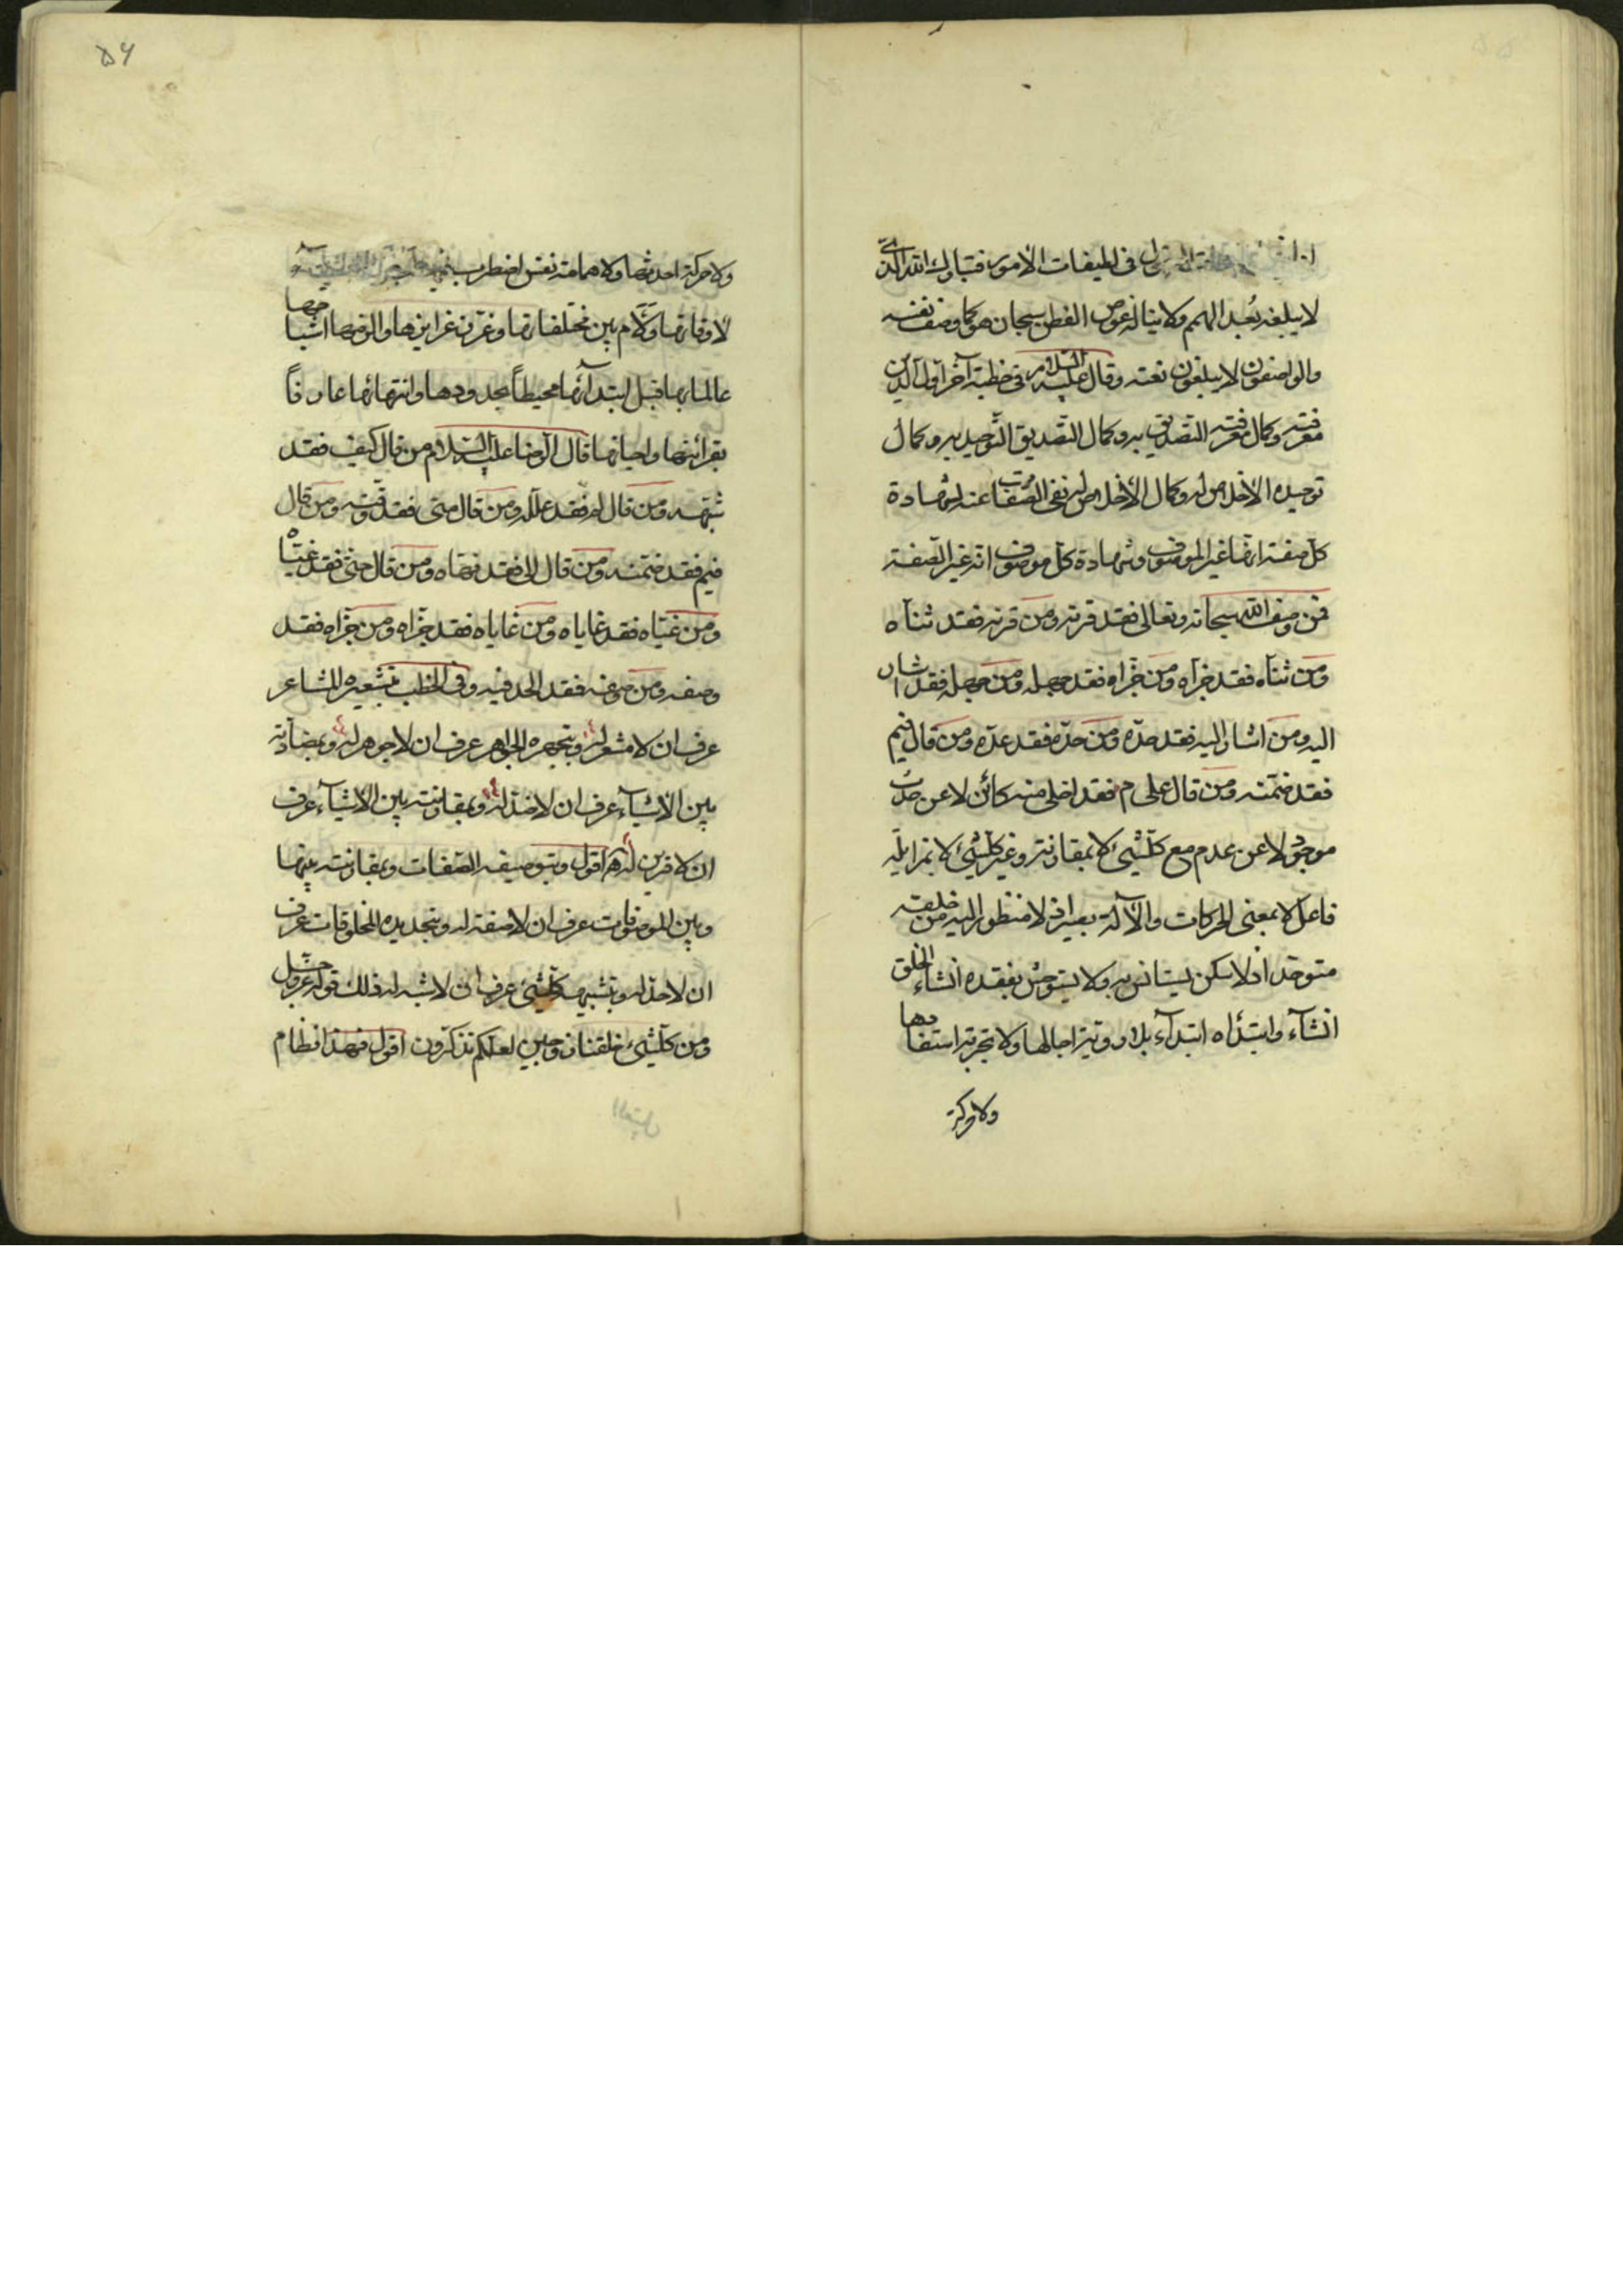 في لطيفات الأمور فتبارك الله الذي
لا يبلغه بُعد الهمم ولا يناله غوص الفطن سبحان هو كما وصف نفسه
والواصفون لا يبلغون نعته وقال عليه السلام في خطبة آخر اول الدين
معرفته وكمال معرفته التصديق به وكمال التصديق التوحيد به وكمال
توحيده الاخلاص له وكمال الاخلاص له نفى الصفات عنه لشهادة
كل صفة انها غير الموصوف وشهادة كل موصوف انه غير الصفة
فمن وصف الله سبحانه وتعالى فقد قرنه ومن قرنه فقد ثنّاه
ومن ثنّاه فقد جزّاه ومن جزّاه فقد جهله ومن جهله فقد اشار
اليه ومن اشار اليه فقد حدّه ومن حدّه فقد عدّه ومن قال فيم
فقد ضمّنه ومن قال على م فقد اخلى منه كائن لا عن حدث
موجود لا عن عدم مع كلشيء لا بمقارنة وغير كلشيء لا بمزايلة
فاعل لا بمعنى الحركات والآلة بصير اذ لا منظور اليه من خلقه
متوحّد اذ لا سكن يستانس به ولا يستوحش بفقده انشاء الخلق
انشآء وابتدأه ابتدآء بلا روية اجالها ولا تجربة استفادها
ولا حركة
۵۶
ولا حركة احدثها ولا همامة نفس اضطرب فيها
لاوقاتها ولآم بين مختلفاتها وغرّز غرايزها والزمها اشباحها
عالما بها قبل ابتدآئها محيطاً بحدودها وانتهائها عارفاً
بقرائنها واحيائها قال الرضا عليه السلام من قال كيف فقد
شبّهه ومن قال لم فقد علّله ومن قال متى فقد وقّته ومن قال
فيم فقد ضمّنه ومن قال الى فقد نهاه ومن قال حتى فقد غيّاه
ومن غيّاه فقد غاياه ومن غاياه فقد جزّاه ومن جزّاه فقد
وصفه ومن وصفه فقد الحد فيه وفى الخطب بتشعيره المشاعر
عرف ان لا مشعر له وبتجهيره الجواهر عرف ان لا جوهر له وبمضادّته
بين الاشيآء عرف ان لا ضدّ له وبمقارنته بين الاشيآء عرف
ان لا قرين له اقول وبتوصيفه الصفات وبمقارنته بينها
وبين الموصوفات عرف ان لا صفة له وبتحديده المخلوقات عرف
ان لا حدّ له وبتشبيهه كلشيء عرف ان لا شبه له فذلك قوله عز وجل
ومن كلشيء خلقنا زوجين لعلكم تذكرون اقول فهذا نظام